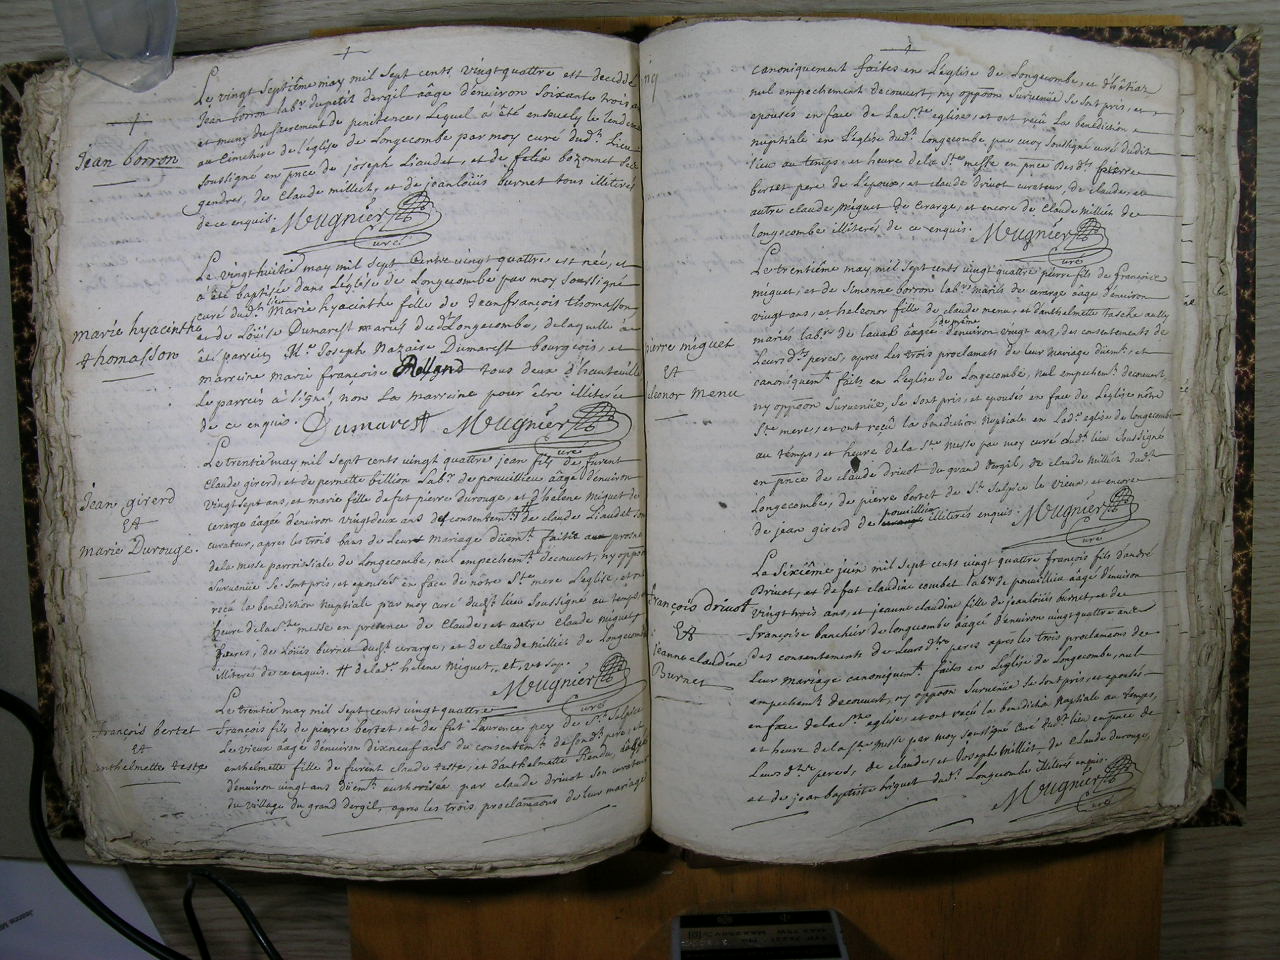 Jean borron
Le vingt septième may mil sept cents vingt quattre est decedé
Jean borron labr. du petit dergil aâge d'environ soixante trois a
et muny du sacrement de penitence, Lequel a été ensevely le lende
au Cimetière de l'eglise de Longecombe par moy curé dud.t Lieu
soussigné en pnce de joseph Liaudet, et de felix bozonnet ses
gendres, de Claude milliet, et de jean loüis burnet tous illiterés
de ce enquis. Mugnier
Curé
marie hyacinthe
thomasson
Le vingthuitiè may mil sept cents vingt quattre est née, et
a été baptisée dans L'église de Longecombe par moy soussigné
curé dud.t lieu Marie hyacinthe fille de Jean françois thomasson
et de Loüise Dumarest mariés dud. Longecombe, de laquelle a
été parrein M.re Joseph Nazaire Dumarest bourgeois, et
marreine marie françoise Rolland tous deux d'hauteville
Le parrein a signé, non La marreine pour être illiterée
de ce enquis. Dumarest Mugnier
Curé
Jean girerd
et
marie Durouge.
Le trentiè may mil sept cents vingt quattre jean fils de furent
Claude girerd, et de pernette billion Labr. de pouvillieu aâgé d'environ
vingt sept ans, et marie fille de fut pierre Durouge, et d'helene Miguet de
cerarge aâgée d'environ vingt deux ans de consentem.t # de claude Liaudet son
curateur, après les trois bans de Leur mariage düem.t faits au prosne
de la messe parroissiale de Longecombe, nul empechem.t decouvert, ny oppoon
survenüe se sont pris, et epousés en face de nôtre S.te mere L'eglise, et ont
reçu la benediction Nuptiale par moy curé dud.t lieu soussigné au temps
heure de la S.te messe en présence de Claude, et autre Claude miguet
freres, de Loüis burnet dud.t cerarge, et de claude milliet de Longecombe
illiterés de ce enquis. # de lad.e helene Miguet, et,
Mugnier
Curé
françois bertet
et
anthelmette teste
Le trentiè may mil sept cents vingt quattre
françois fils de pierre bertet, et de fut Laurence pey de S.t Sulpice
Le vieux aâgé d'environ dixneuf ans du consentem.t de sond. pere, et
anthelmette fille de furent claude teste, et d'anthelmette Rendu, aâgée
d'environ vingt ans düem.t authorisée par claude drivot son curateur
du village du grand dergil, apres les trois proclamaons de leur mariage
canoniquement faites en L'église de Longecombe,
nul empechement decouvert, ny oppoon survenüe se sont pris, et
epousés en face de La S.te eglise, et ont reçu La benediction
nuptiale en L'eglise dud.t longecombe par moy soussigné curé dudit
lieu au temps, et heure de la S.te messe en pnce des d.ts pierre
bertet pere de L'epoux, et claude drivot curateur, de claude, et
autre claude Miguet de Cerarge, et encore de Claude Milliet de
longecombe illiterés de ce enquis. Mugnier
Curé
pierre miguet
et
eleonor menu
Le trentiême may mil sept cents vingt quattre pierre fils de françois
miguet, et de Simonne borron labrs mariés de cerarge aâgé d'environ
vingt ans, et heleonor fille de claude menu, et d'anthelmette tasche aussy
mariés labr. de laval aâgée de même d'environ vingt ans, des consentements de
Leurs d.ts peres, après les trois proclamats de leur mariage düem.t, et
canoniquem.t faits en L'eglise de Longecombe, nul empechem.t decouvert,
ny oppoon survenüe, se sont pris, et epousés en face de L'eglise nôtre
S.te mere, et ont reçü la benediction Nuptiale en Lad.e eglise de longecombe
au temps, et heure de la S.te Messe par moy curé dud.t lieu soussigné
en pnce de claude drivot du grand dergil, de claude milliet dud.t
Longecombe, de pierre bertet de S.t Sulpice le vieux et encore
de jean girerd de pouvillieu illiterés enquis. Mugnier
Curé
françois drivot
et
jeanne claudine
Burnet
Le Sixiéme juin mil sept cents vingt quattre françois fils d'andré
Drivot, et de fut claudine coubet labr. de pouvillieu aâgé d'environ
vingt trois ans, et jeanne claudine fille de jean loüis burnet, et de
françoise banchier de longecombe aâgée d'environ vingt quattre ans
des consentements de Leurs d.ts peres après les trois proclamaons de
Leur mariage canoniquem.t faits en L'eglise de Longecombe, nul
empechem.t decouvert, ny oppoon survenüe se sont pris, et epousés
en face de la S.te eglise, et ont reçü la benediction Nuptiale au temps,
et heure de la S.te Messe par moy soussigné curé dud.t lieu en pnce de
Leurs d.ts peres, de claude, et Joseph Milliet, de Claude durouge,
et de jean baptiste briguet dud.t Longecombe illiterés enquis.
Mugnier
Curé